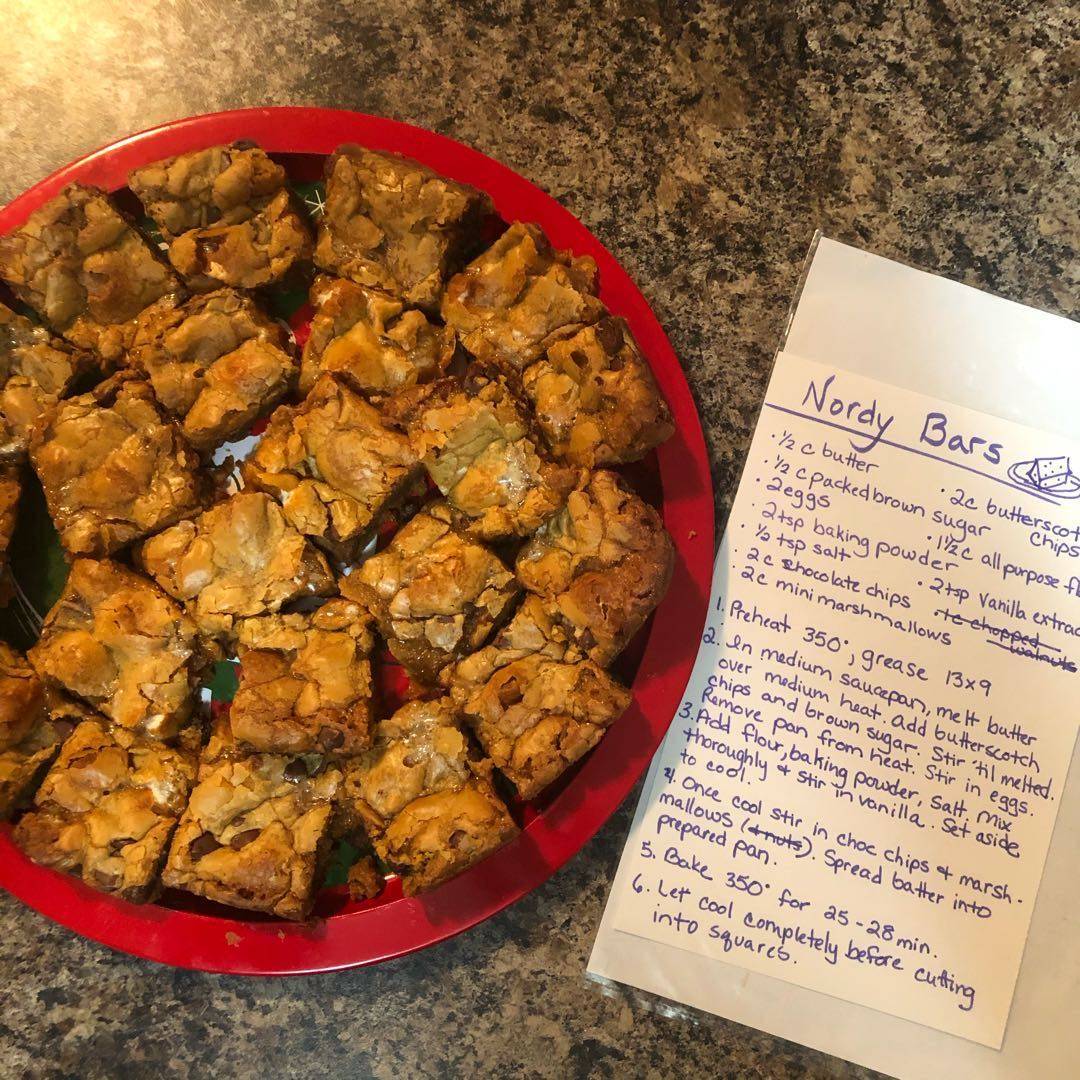 Nordy Bars
• ½ c butter
• ½ c packed brown sugar
• 2 eggs
• 2 tsp baking powder
• ½ tsp salt
• 2 c chocolate chips
• 2 c mini marshmallows
• 2 c butterscot
chips
• 1½ c all purpose fl
• 2 tsp vanilla extrac
• 1c chopped
walnuts
1. Preheat 350°, grease 13x9
2. In medium saucepan, melt butter
over medium heat. add butterscotch
chips and brown sugar. Stir 'til melted.
Remove pan from heat. Stir in eggs.
3. Add flour, baking powder, salt. Mix
thoroughly & stir in vanilla. Set aside
to cool.
4. Once cool stir in choc chips & marsh-
mallows (& nuts). Spread batter into
prepared pan.
5. Bake 350° for 25-28 min.
6. Let cool completely before cutting
into squares.